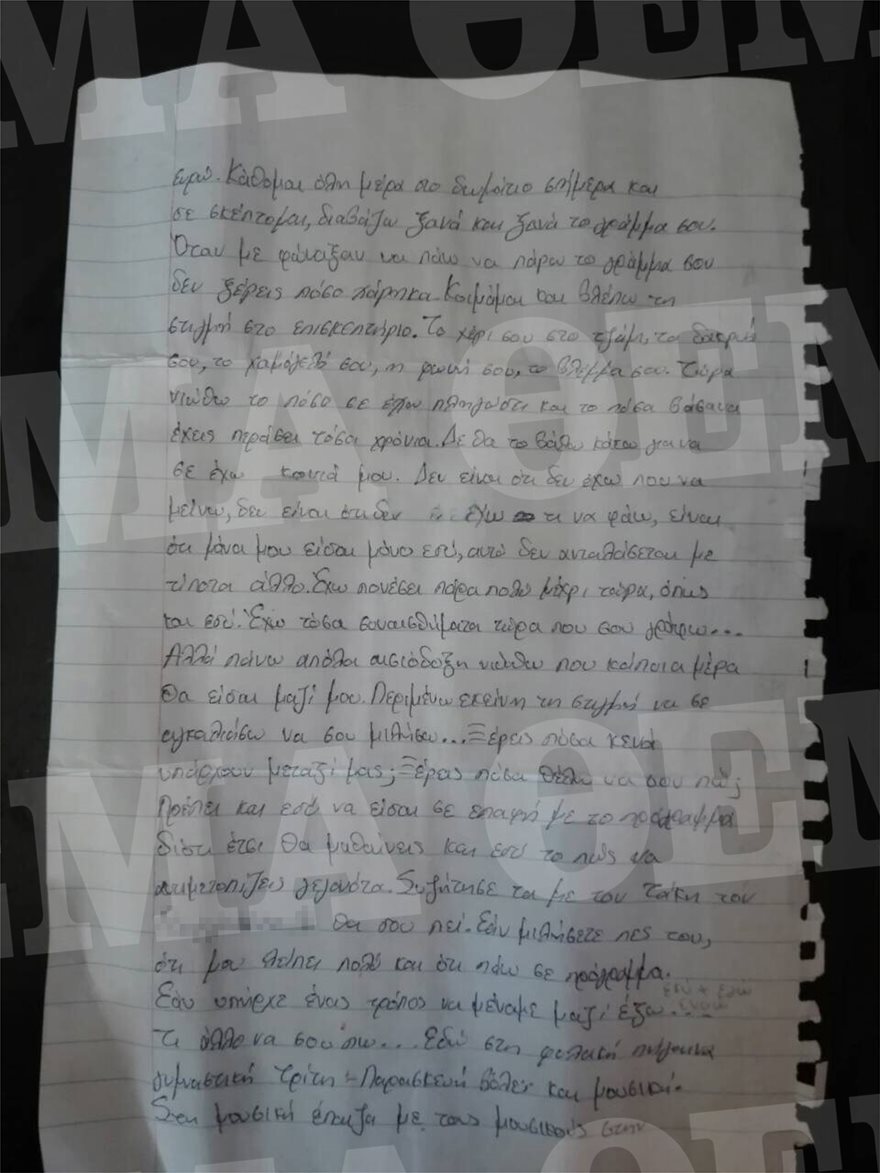 ΜΑ ΘΕΜ
εγώ. Κάθομαι όλη μέρα στο δωμάτιο σήμερα και
σε σκέπτομαι, διαβάζω ξανά και ξανά το γράμμα σου.
Όταν με φώναξαν να πάω να πάρω το γράμμα σου
δεν ξέρεις πόσο χάρηκα. Κοιμάμαι και βλέπω τη
στιγμή στο επισκεπτήριο. Το χέρι σου στο τζάμι, το δάκρυ
σου, το χαμόγελό σου, η φωνή σου, το βλέμμα σου. Τώρα
ΜΑ ΘΕΜ
νιώθω το πόσο σε έχω πληγώσει και το πόσα βάσανα
έχεις περάσει τόσα χρόνια. Δε θα το βάλω κάτω για να
σε έχω κοντά μου. Δεν είναι ότι δεν έχω που να
μείνω, δεν είναι ότι δεν έχω τι να φάω, είναι
ότι μάνα μου είσαι μόνο εσύ, αυτό δεν ανταλάσεται με
τίποτα άλλο. Έχω πονέσει πάρα πολύ μέχρι τώρα, όπως
και εσύ. Έχω τόσα συναισθήματα τώρα που σου γράφω...
Αλλά πάνω απόλα αισιόδοξη νιώθω που κάποια μέρα
θα είσαι μαζί μου. Περιμένω εκείνη τη στιγμή να σε
αγκαλιάσω να σου μιλήσω... Ξέρεις πόσα κενά
υπάρχουν μεταξί μας; Ξέρεις πόσα θέλω να σου πω;
ΜΑ ΘΕΜ
Πρέπει και εσύ να είσαι σε επαφή με το πρόγραμμα
διότι έτσι θα μαθαίνεις και εσύ το πώς να
αντιμετοπίζεις γεγονότα. Συζήτησε τα με τον Τάκη τον
θα σου πει. Εάν μιλήσετε πες του,
ότι μου λείπει πολύ και ότι πάω σε πρόγραμμα.
Εάν υπήρχε ένας τρόπος να μέναμε μαζί έξω...
Τι άλλο να σου πω... Εδώ στη φυλακή πήγαινα
γυμναστική Τρίτη - Παρασκευή βόλεϊ και μουσική.
Στη μουσική έπαιζα με τους μουσικούς στην
ΜΑ ΘΕΜ